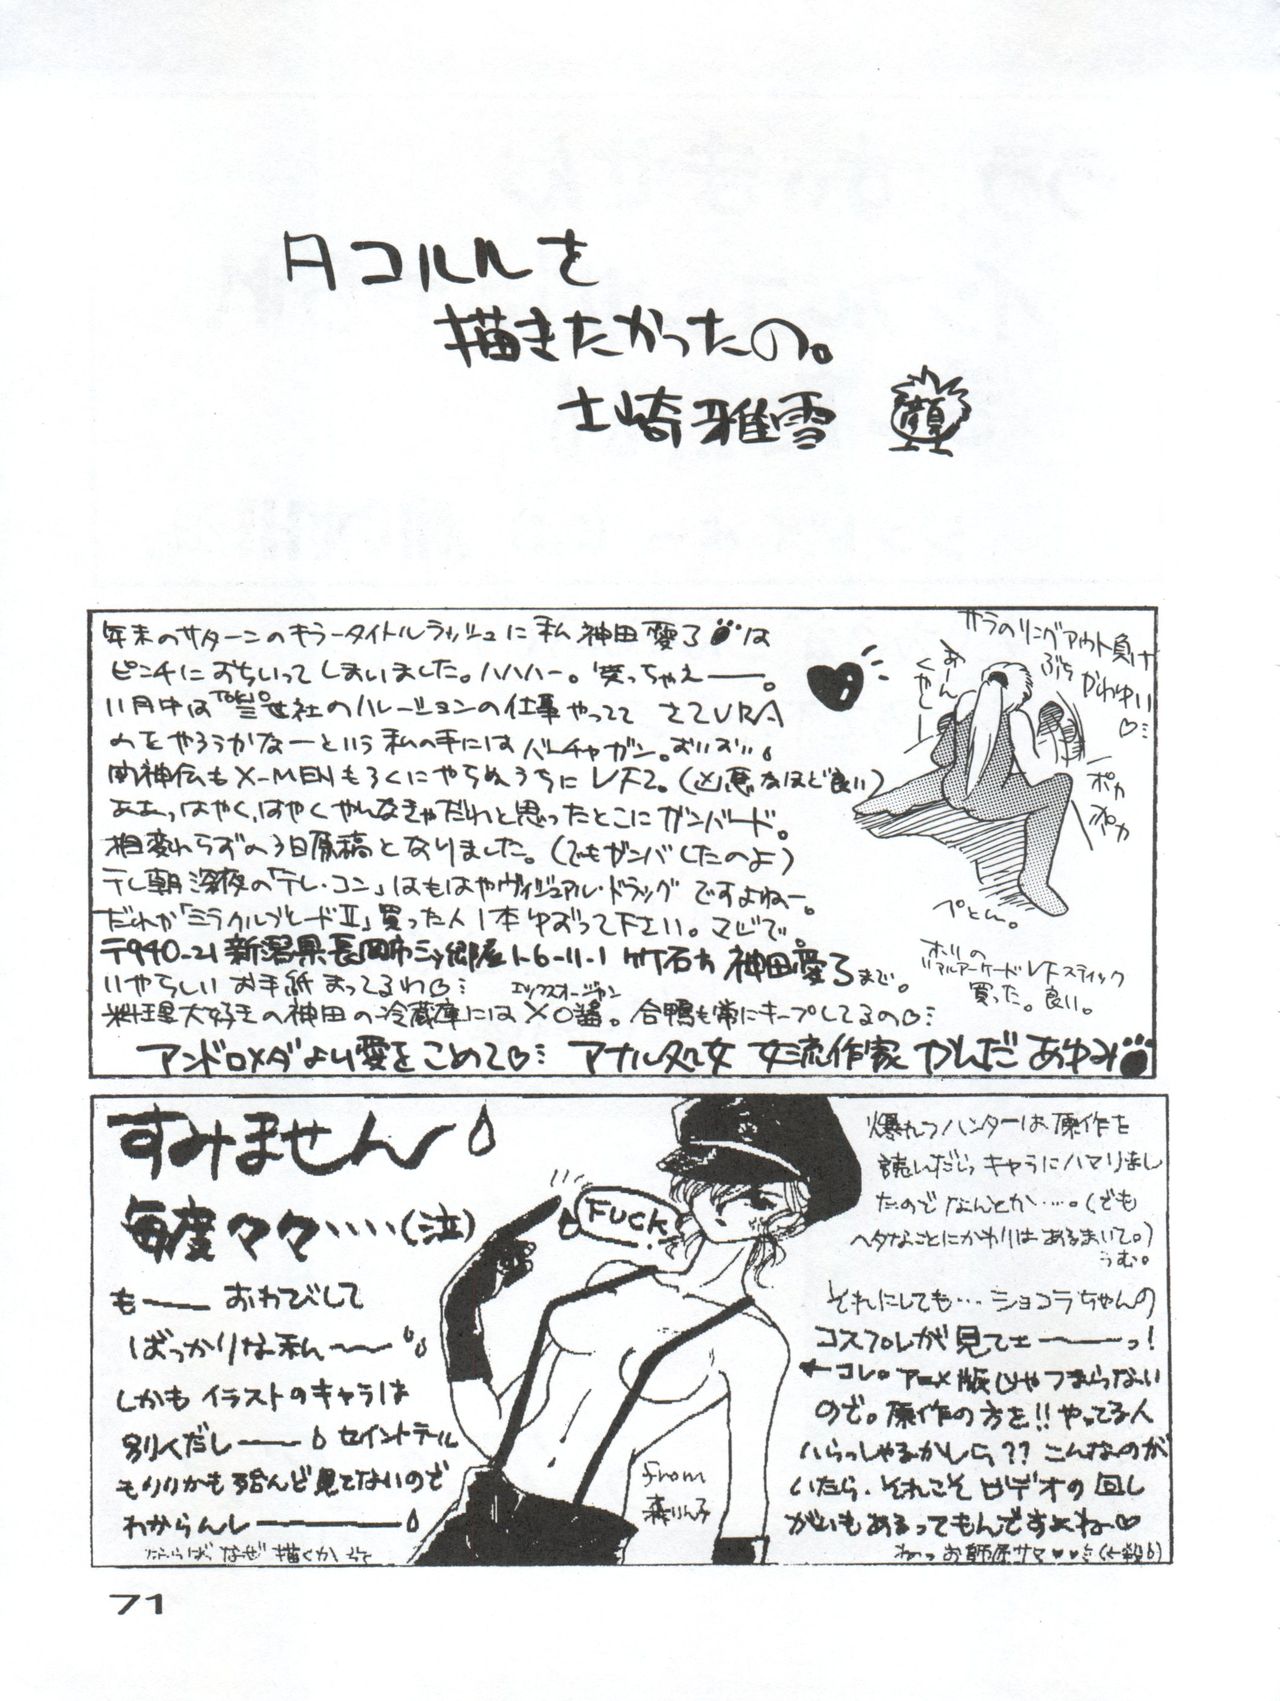 タコルルを
描きたかったの。
士崎雅雪
顔
年末のサターンのキラータイトルラッシュに私 神田愛了は
ピンチにおちいってしまいました。ハハハー。笑っちゃえ――。
11月中は 社のハレーションの仕事やってて さてURA
のをやろうかなーという私の手にはバーチャガン。おいおい
闘神伝もX-MENもろくにやらぬうちにVF2。(凶悪なほど良い)
ああっはやくはやくやんなきゃだわと思ったとこにガンバード。
相変わらずの3日原稿となりました。(でもガンバしたのよ)
テレ朝深夜の「テレ・コン」はもはやヴィジュアル・ドラッグですよねー。
だれか「ミラクルブレードⅡ」買った人1本ゆずって下さい。マジで。
〒940-21 新潟県長岡市三ツ郷屋1-6-11-1 竹石方 神田愛了まで。
いやらしいお手紙まってるわ♡
エックスオージャン
料理大好きの神田の冷蔵庫にはXO醤。合鴨も常にキープしてるの♡
アンドロメダより愛をこめて♡ アナル処女 女流作家 かんだあゆみ
サラのリングアウト負け
ぶち かわゆい♡
あーん
くやしー
ポカ
ポカ
ぺとん。
ホリの
リアルアーケードVFスティック
買った。良い。
すみません
毎度々々・・・・(泣)
も―― おわびして
ばっかりな私――
しかもイラストのキャラは
別人だし―― セイントテール
もりりかも殆んど見てないので
わからんし――
ならばなぜ描くかって
FUCK
from
森りん子
爆れつハンターは、原作を
読んだらっキャラにハマりまし
たのでなんとか・・・・。(でも
ヘタなことにかわりはあるまいて。)
うむ。
それにしても・・・ショコラちゃんの
コスプレが見てェ――っ!
←コレ。アニメ版じゃつまらない
ので。原作の方を!!やってる人
いらっしゃるかしら?? こんなのが
いたら、それこそビデオの回し
がいもあるってもんですよね♡
ねっお師原サマ♥♥ミ(←殺)
71